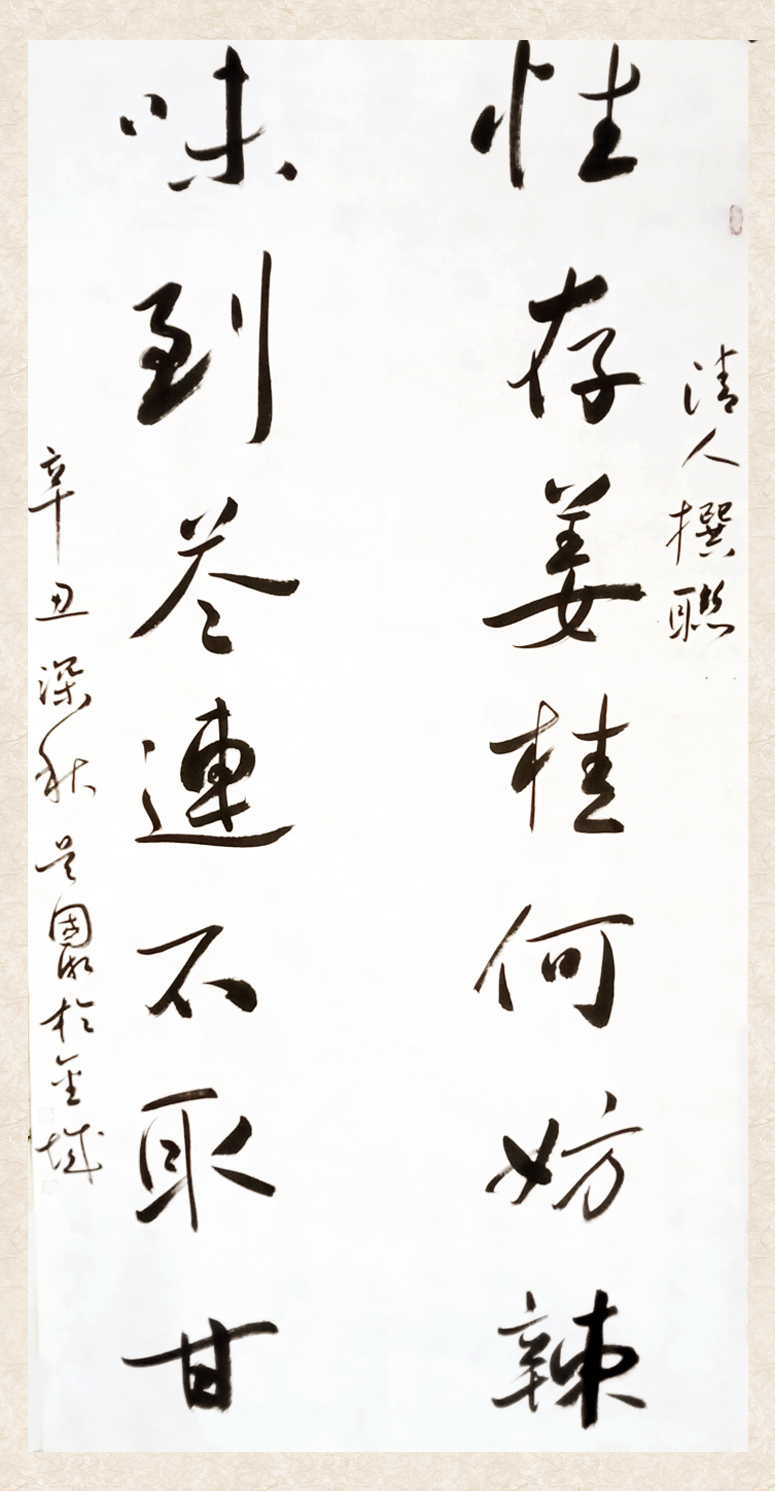 清人撰聯
性存姜桂何妨辣
味到芩連不取甘
辛丑深秋吴國於金城